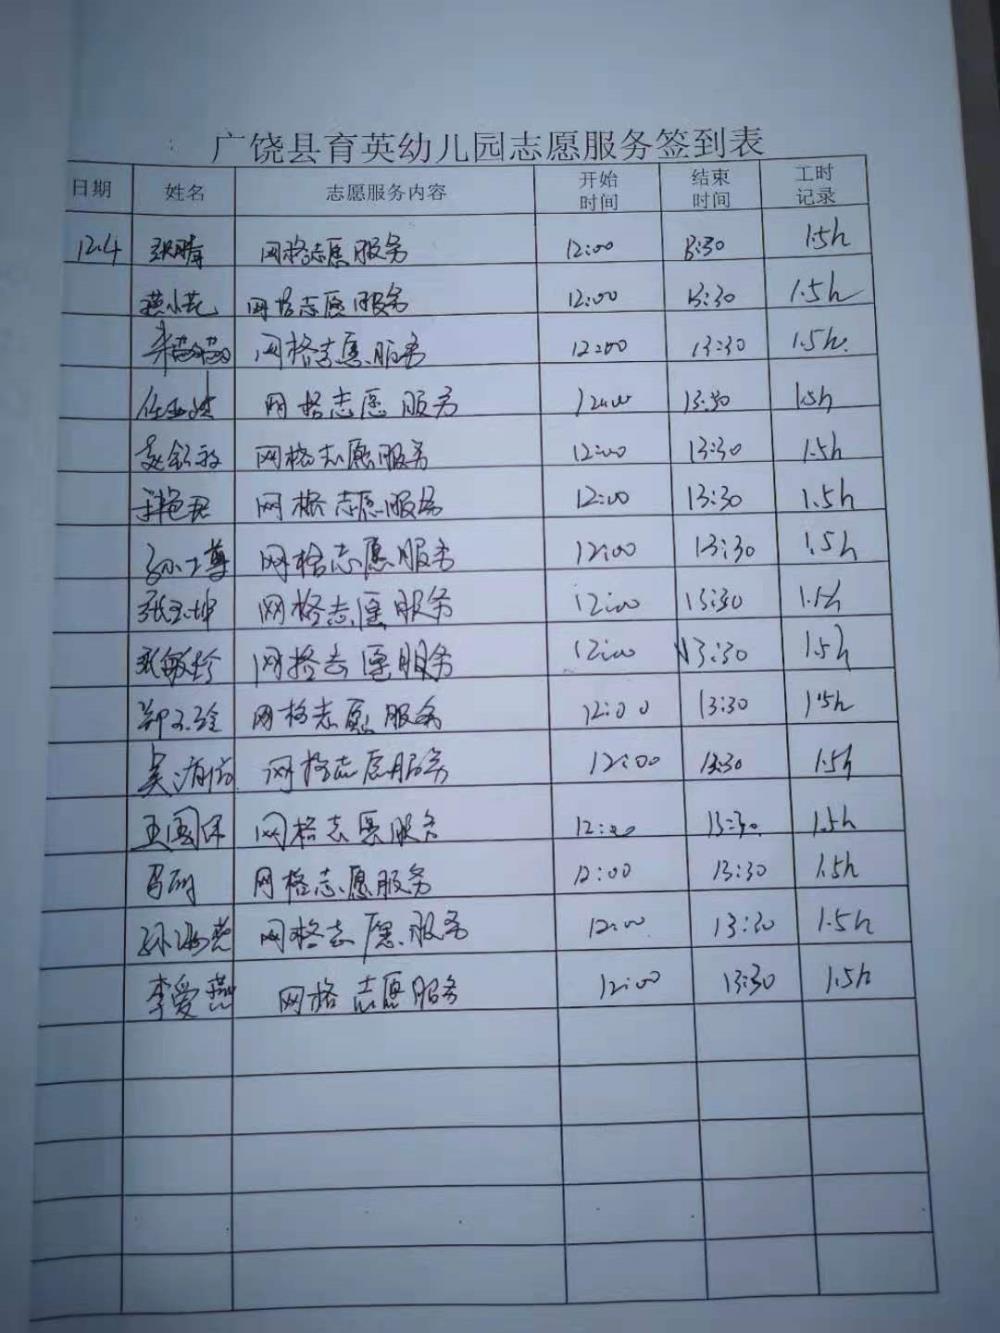 广饶县育英幼儿园志愿服务签到表
日期 姓名 志愿服务内容 开始时间 结束时间 工时记录
12.4 张晴 网格志愿服务 12:00 13:30 1.5h
燕小花 网格志愿服务 12:00 13:30 1.5h
网格志愿服务 12:00 13:30 1.5h.
任亚 网格志愿服务 12:00 13:30 1.5h
网格志愿服务 12:00 13:30 1.5h
艳君 网格志愿服务 12:00 13:30 1.5h
孙 尊 网格志愿服务 12:00 13:30 1.5h
张玉坤 网格志愿服务 12:00 13:30 1.5h
张敏珍 网格志愿服务 12:00 13:30 1.5h
郑玉玲 网格志愿服务 12:00 13:30 1.5h
吴清 网格志愿服务 12:00 13:30 1.5h
王国 网格志愿服务 12:00 13:30 1.5h
网格志愿服务 12:00 13:30 1.5h
孙海燕 网格志愿服务 12:00 13:30 1.5h
李爱燕 网格志愿服务 12:00 13:30 1.5h